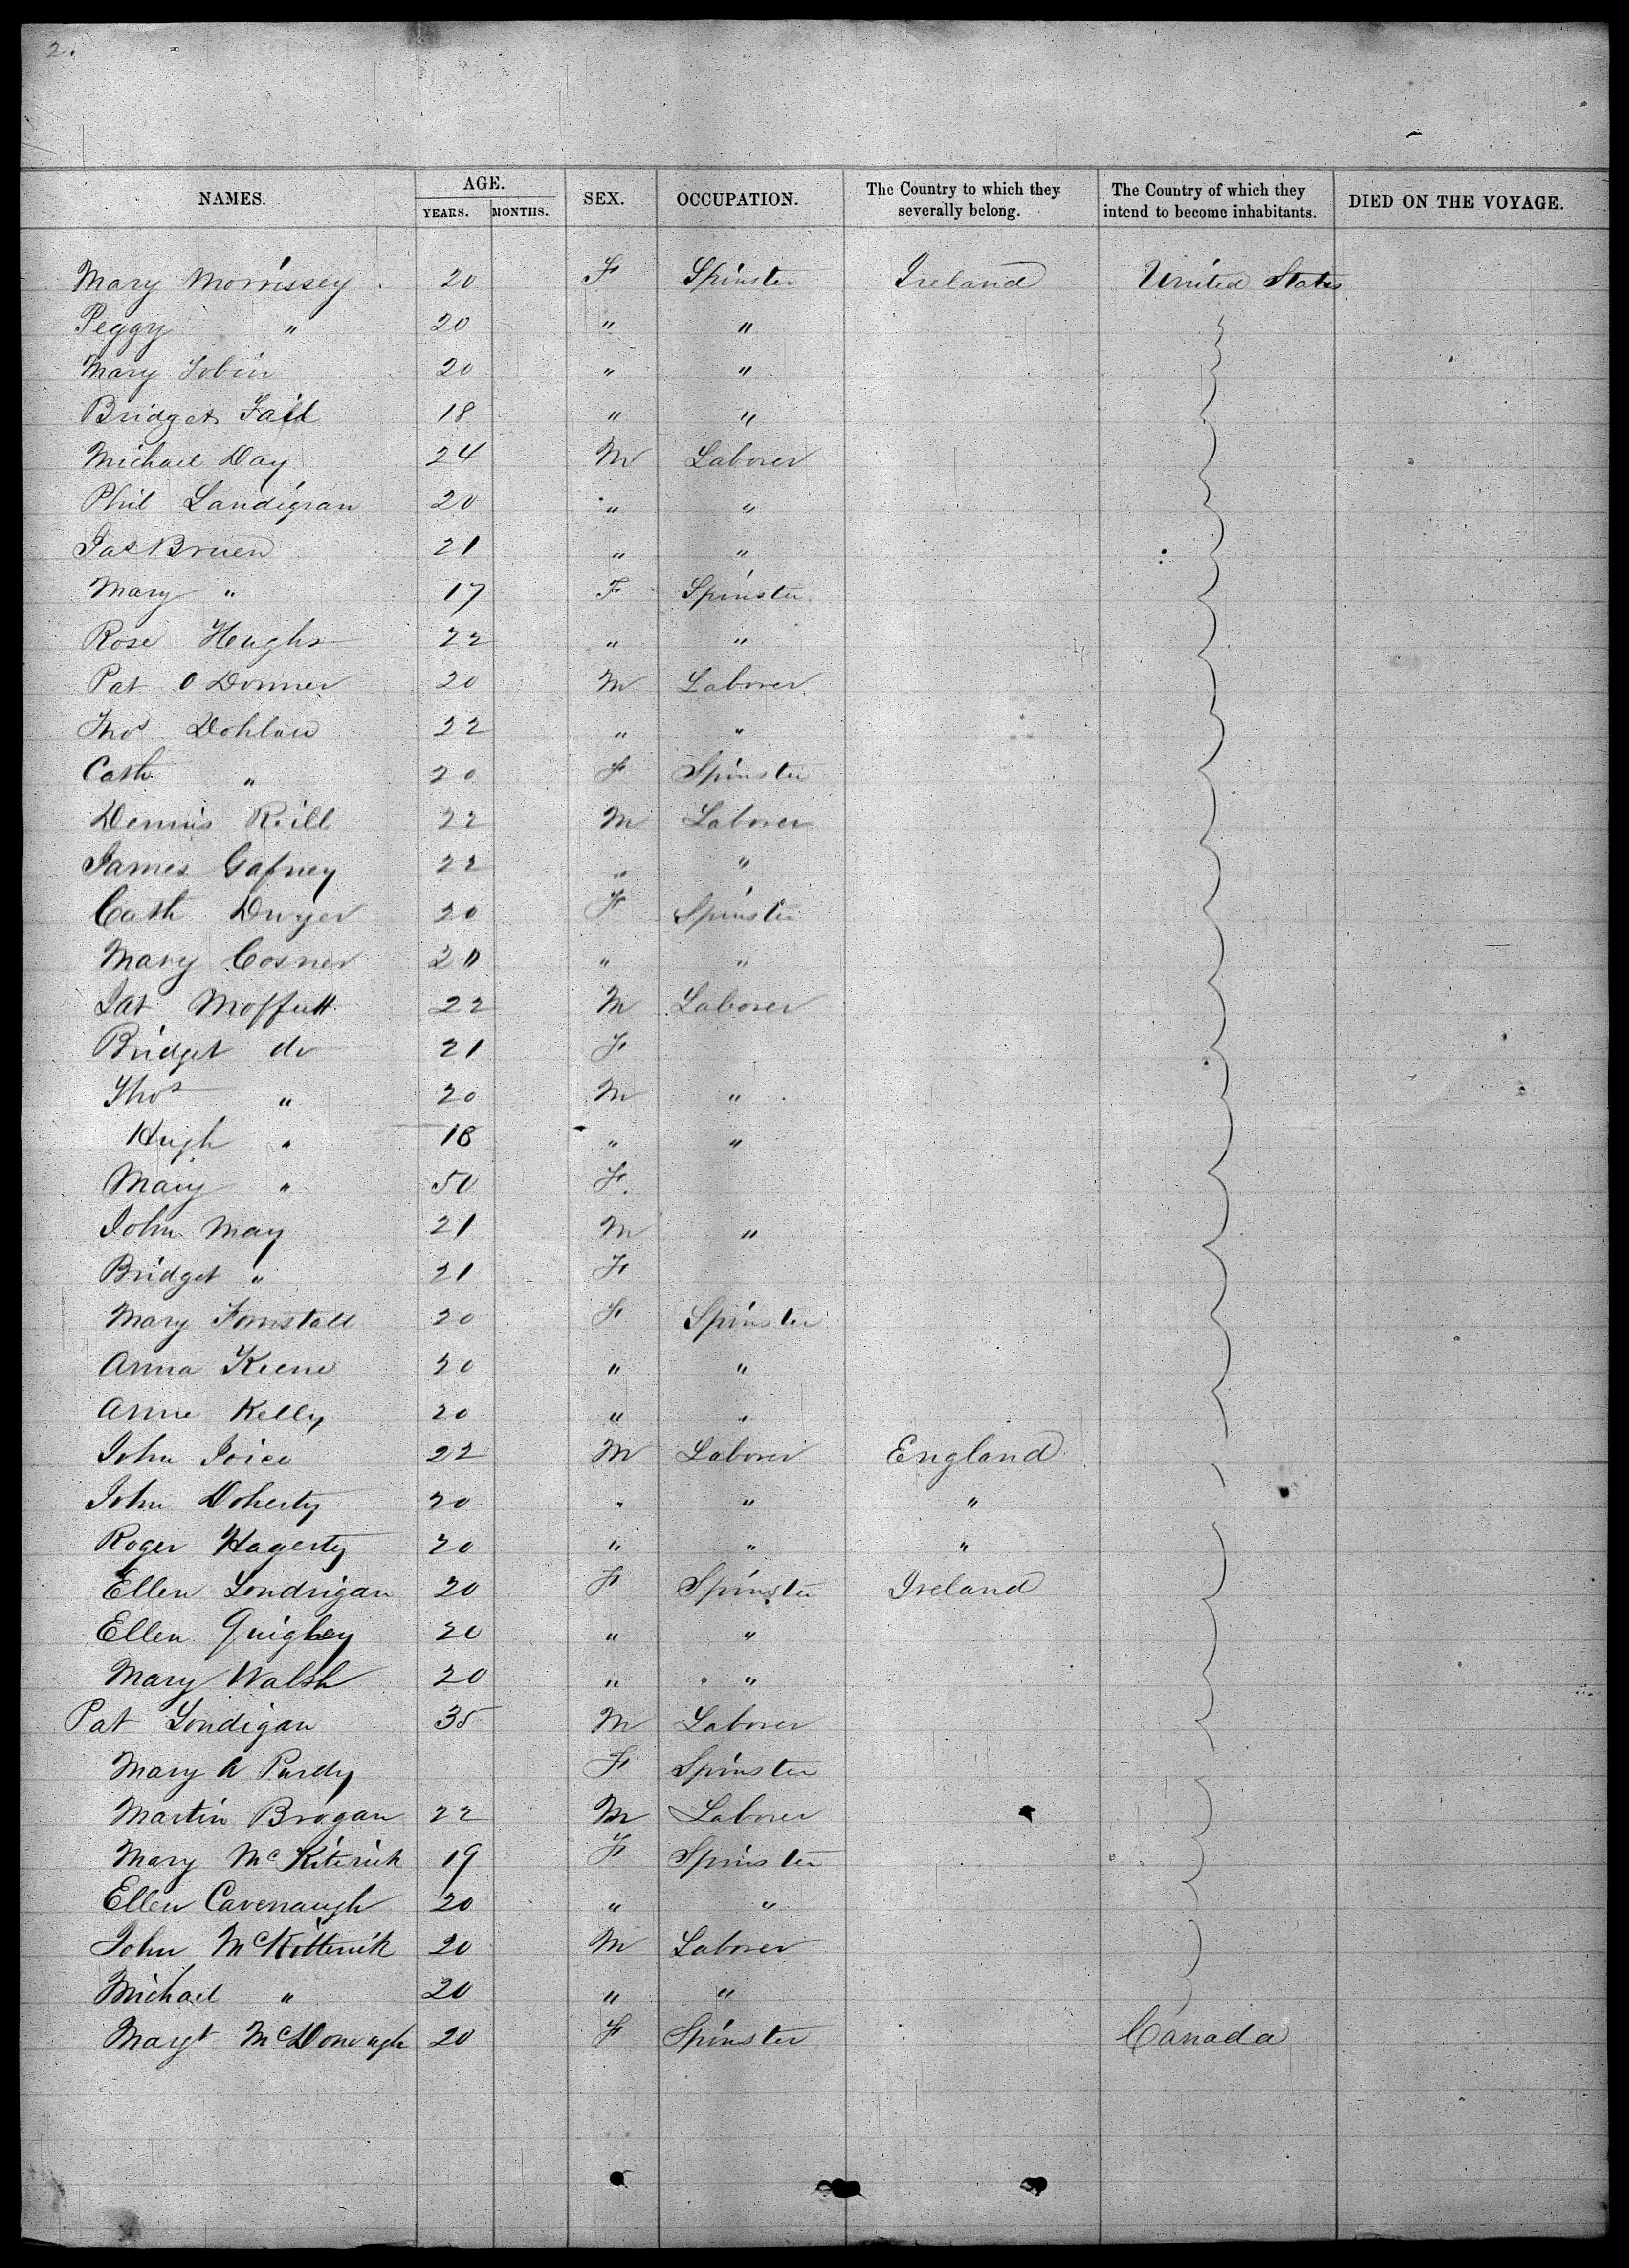 2.
NAMES. AGE. SEX. OCCUPATION. The Country to which they severally belong. The Country of which they intend to become inhabitants. DIED ON THE VOYAGE.
YEARS. MONTHS.
Mary Morrissey 20 F Spinster Ireland United States
Peggy " 20 " "
Mary Tobin 20 " "
Bridget Fail 18 " "
Michael Day 24 M Laborer
Phil Landigran 20 " "
Jas Bruen 21 " "
Mary " 17 F Spinster
Rose Heughs 22 " "
Pat O Donner 20 M Laborer
Thos Dohlan 22 " "
Cath " 20 F Spinster
Dennis Reill 22 M Laborer
James Gafney 22 " "
Cath Dwyer 20 F Spinster
Mary Cosner 20 " "
Pat Moffutt 22 M Laborer
Bridget do 21 F
Thos " 20 M "
Hugh " 18 " "
Mary " 50 F
John May 21 M "
Bridget " 21 F
Mary Fornstall 20 F Spinster
Anna Keene 20 " "
Anne Kelly 20 " "
John Joice 22 M Laborer England
John Doherty 20 " " "
Roger Hagerty 20 " " "
Ellen Londrigan 20 F Spinster Ireland
Ellen Quigley 20 " "
Mary Walsh 20 " "
Pat Londigan 35 M Laborer
Mary A Purdy F Spinster
Martin Brogan 22 M Laborer
Mary McKiterick 19 F Spinster
Ellen Cavenaugh 20 " "
John McKitterick 20 M Laborer
Michael " 20 " "
Margt McDonough 20 F Spinster Canada